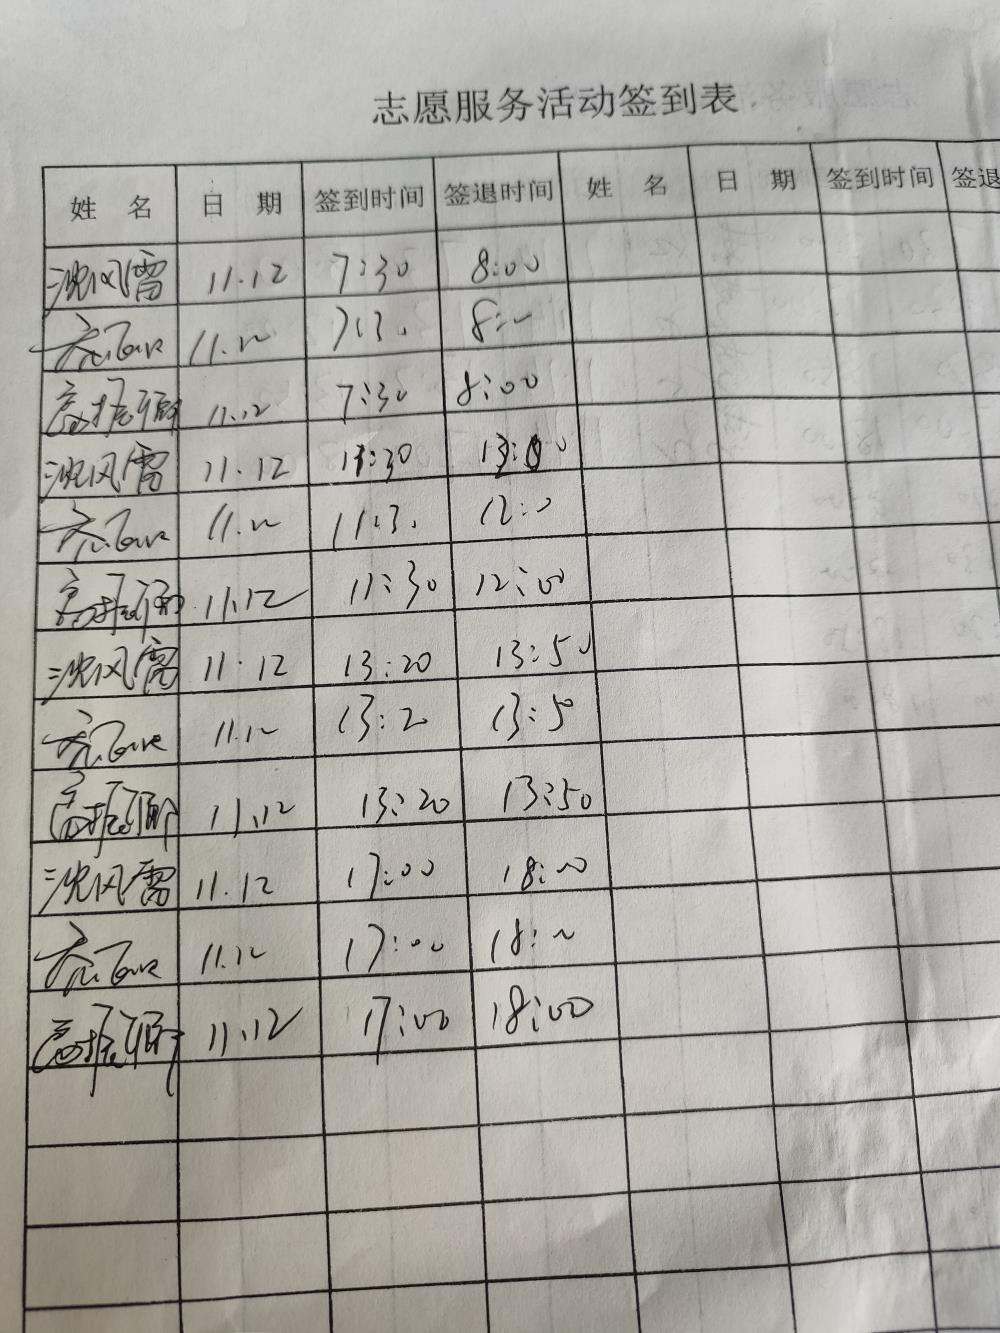 志愿服务活动签到表
姓 名 日 期 签到时间 签退时间 姓 名 日 期 签到时间 签退
沈风雷 11.12 7:30 8:00
11.12 7:30 8:00
高振 11.12 7:30 8:00
沈风雷 11.12 :30
11.12 11:30 12:00
高振 11.12 11:30 12:00
沈风雷 11.12 13:20 13:50
11.12 13:20 13:50
高振 11.12 13:20 13:50
沈风雷 11.12 17:00 18:00
11.12 17:00 18:00
高振 11.12 17:00 18:00